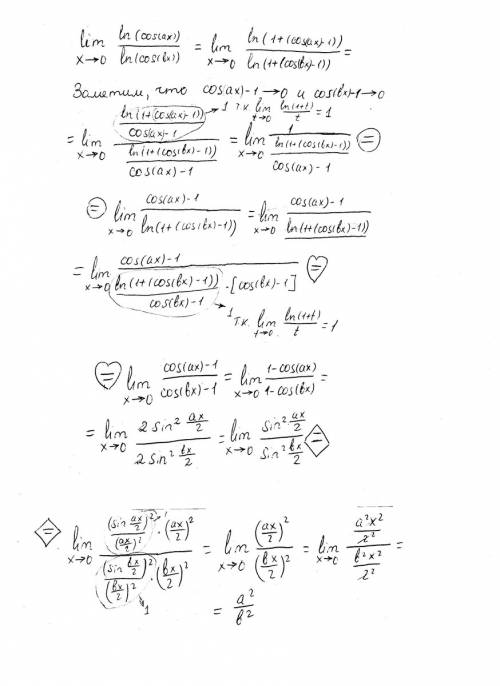 lim x→0 ln(cos(ax))/ln(cos(bx)) = lim x→0 ln(1+(cos(ax)-1))/ln(1+(cos(bx)-1)) =
Заметим, что cos(ax)-1→0 и cos(bx)-1→0
= lim x→0 (ln(1+(cos(ax)-1))/(cos(ax)-1))/(ln(1+(cos(bx)-1))/(cos(ax)-1)) →1 т.к. lim t→0 ln(1+t)/t = 1 = lim x→0 1/(ln(1+(cos(bx)-1))/(cos(ax)-1)) =
= lim x→0 (cos(ax)-1)/ln(1+(cos(bx)-1)) = lim x→0 (cos(ax)-1)/ln(1+(cos(bx)-1))
= lim x→0 (cos(ax)-1)/((ln(1+(cos(bx)-1))/(cos(bx)-1))·[cos(bx)-1]) =
1 т.к. lim t→0 ln(1+t)/t = 1
= lim x→0 (cos(ax)-1)/(cos(bx)-1) = lim x→0 (1-cos(ax))/(1-cos(bx)) =
= lim x→0 (2 sin² ax/2)/(2 sin² bx/2) = lim x→0 (sin² ax/2)/(sin² bx/2) =
= lim x→0 ((sin ax/2)²/(ax/2)² · (ax/2)²)/((sin bx/2)²/(bx/2)² · (bx/2)²) = lim x→0 (ax/2)²/(bx/2)² = lim x→0 (a²x²/2²)/(b²x²/2²) =
1
= a²/b²